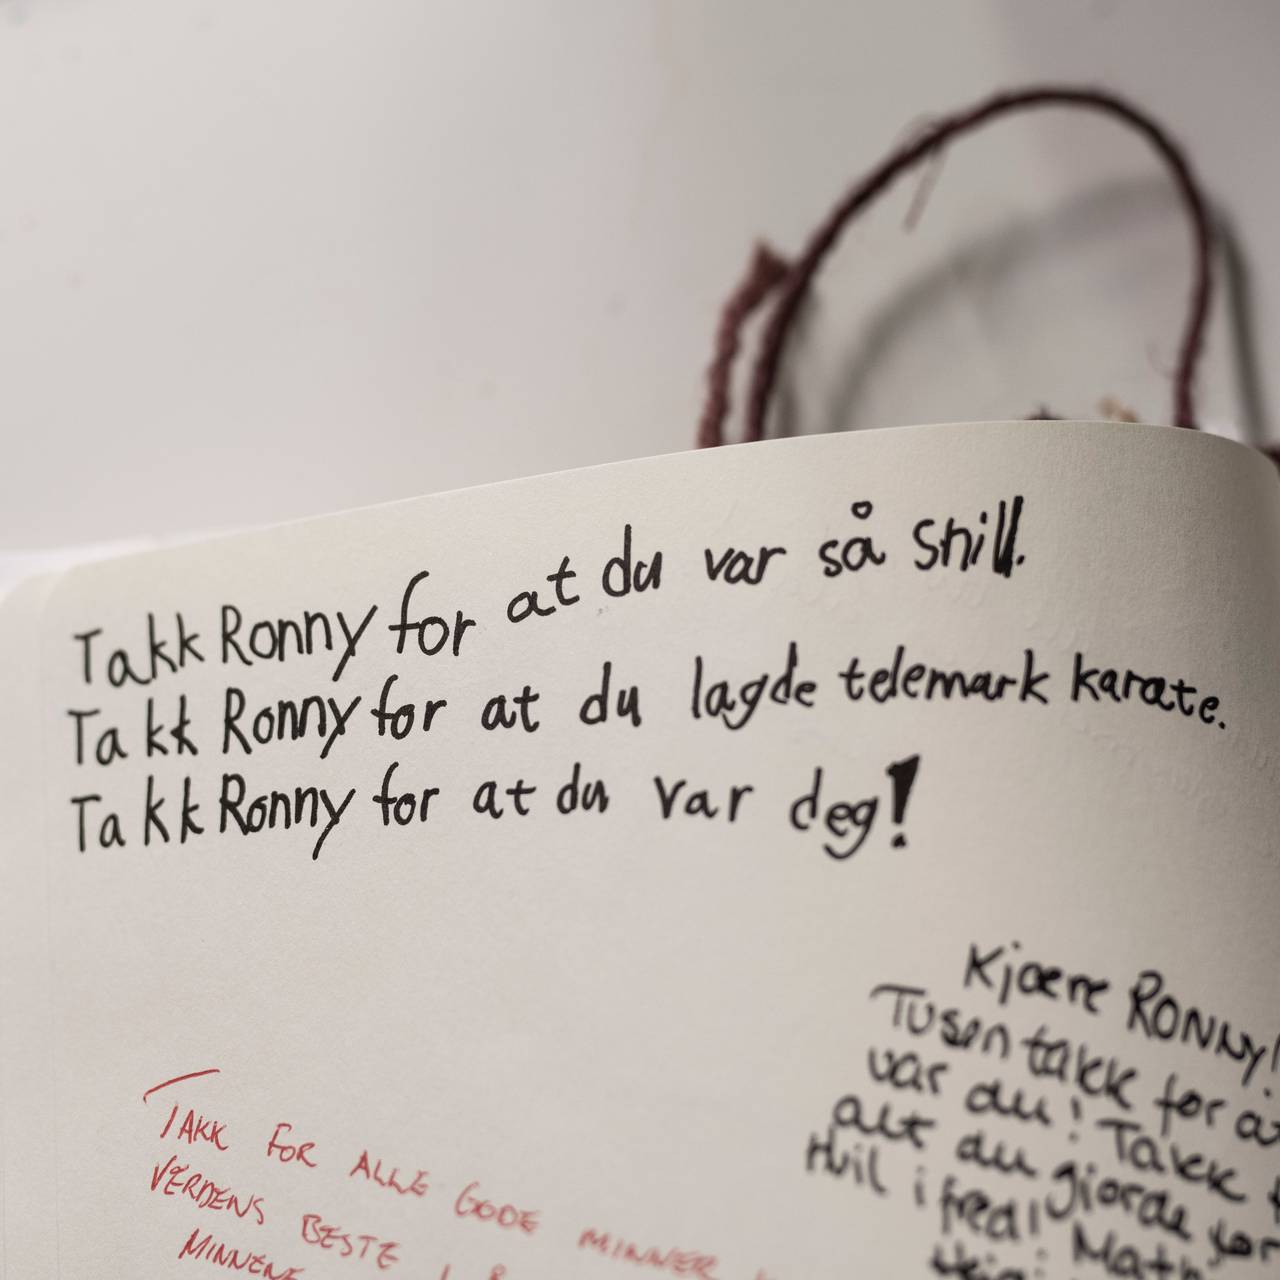 Takk Ronny for at du var så snill.
Takk Ronny for at du lagde telemark karate.
Takk Ronny for at du var deg!
Kjære RONNY!
Tusen takk for at
var du! Takk
alt du gjorde for
Hvil i fred!
TAKK FOR ALLE GODE MINNER
VERDENS BESTE
MINNENE